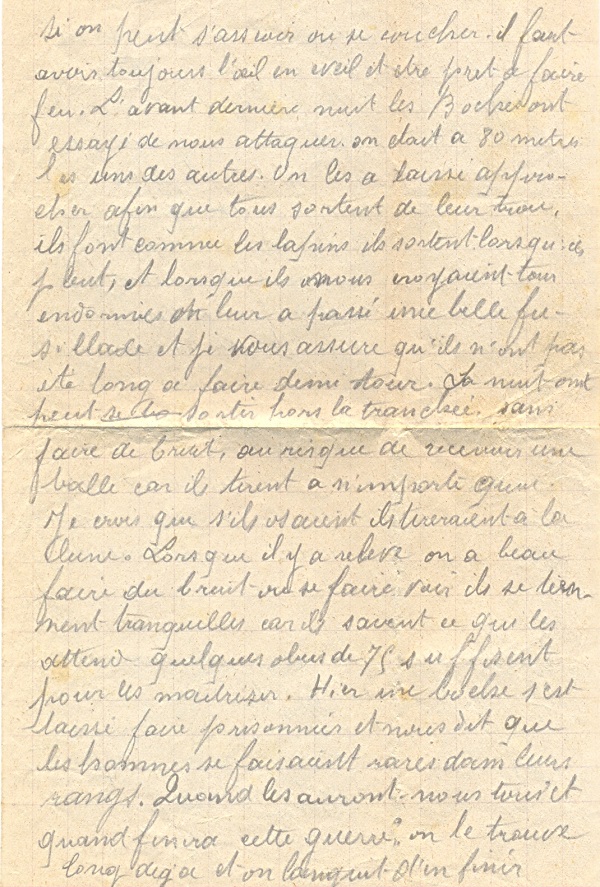 si on peut s'assoir ou se coucher. il faut
avoir toujours l'œil en eveil et etre pret a faire
feu. L'avant derniere nuit les Boches ont
essayé de nous attaquer. on etait a 80 metres
les uns des autres. On les a laissé appro-
cher afin que tous sortent de leur trou,
ils font comme les lapins ils sortent lorsqu'il
pleut, et lorsque ils nous croyaient tous
endormies on leur a passé une belle fu-
sillade et je vous assure qu'ils n'ont pas
été long a faire demi tour. La nuit ont
peut sortir hors la tranchée. sans
faire de bruit, au risque de recevoir une
balle car ils tirent a n'importe quoi.
Je crois que s'ils osaient ils tireraient a la
lune. Lorsque il y a relevé on a beau
faire du bruit ou se faire voir ils se tien-
nent tranquilles car ils savent ce qui les
attend quelques obus de 75 suffisent
pour les maitriser. Hier une boche s'est
laissé faire prisonnier et nous dit que
les hommes se faisaient rares dans leurs
rangs. Quand les auront-nous tous et
quand finira cette guerre? on le trouve
long deja et on languit d'en finir